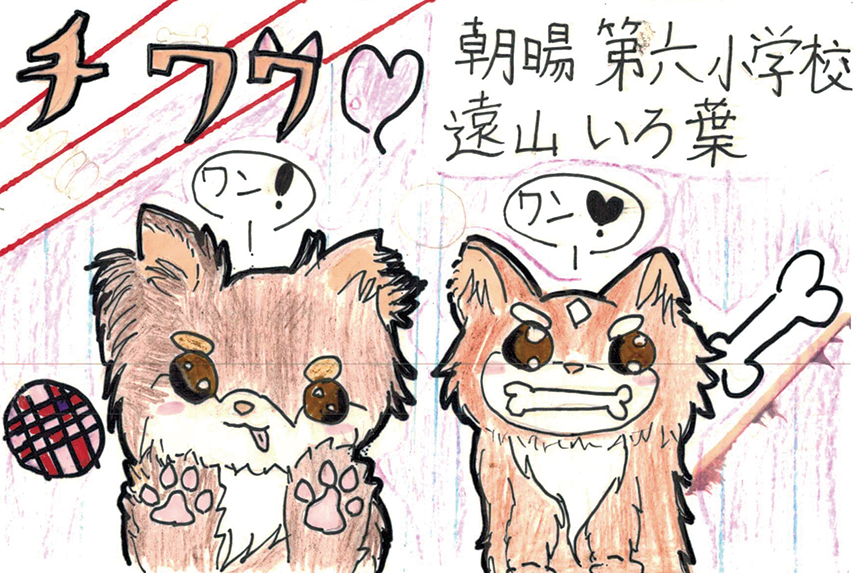 チワワ♡
朝暘第六小学校
遠山いろ葉
ワン!
ワン♥